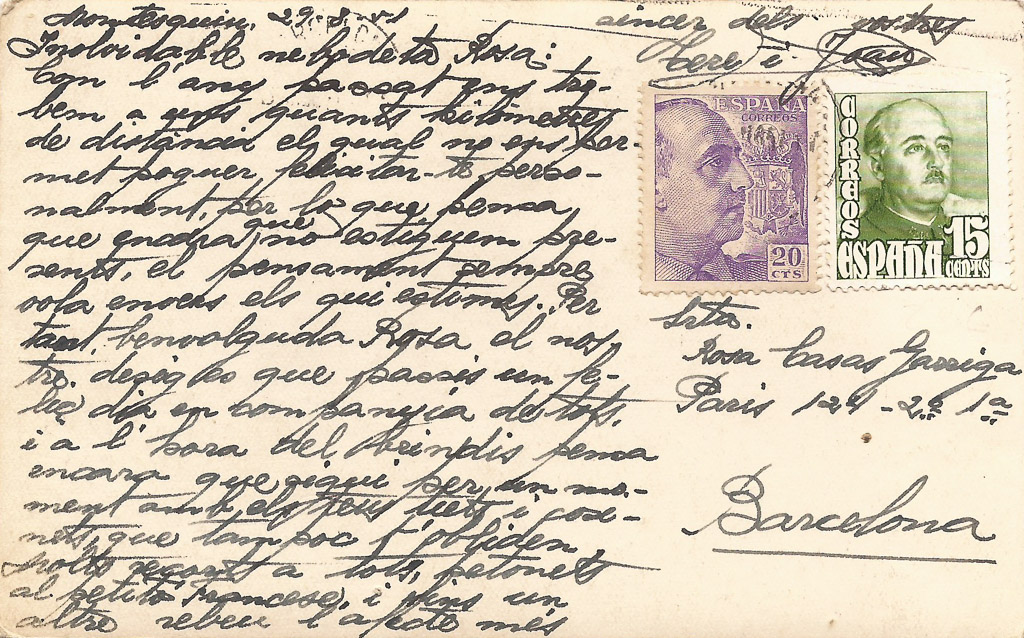 Montesquiu, 29-8-51
Inolvidable nebodeta Rosa:
Com l'any passat ens tro-
bem a uns quants kilometres
de distància el qual no ens per-
met poguer felicitar-te perso-
nalment, per lo que pensa
que encara que no estiguem pre-
sents, el pensament sempre
vola envers els qui estimes. Per
tant, benvolguda Rosa el nos-
tre desig es que passis un fe-
liç dia en companyia de tots,
i a l'hora del brindis pensa
encara que sigui per un mo-
ment amb els teus tiets i cosi-
nets, que tampoc t'obliden
Molts recorts a tots, petonets
al petitó Francesc, i fins un
altre rebeu l'afecte més
sincer dels vostres
Tere i Joan
ESPAÑA
CORREOS
20
CTS
CORREOS
ESPAÑA
15
CENTS
Srta.
Rosa Casas Garriga
Paris 121 - 2º 1ª
Barcelona